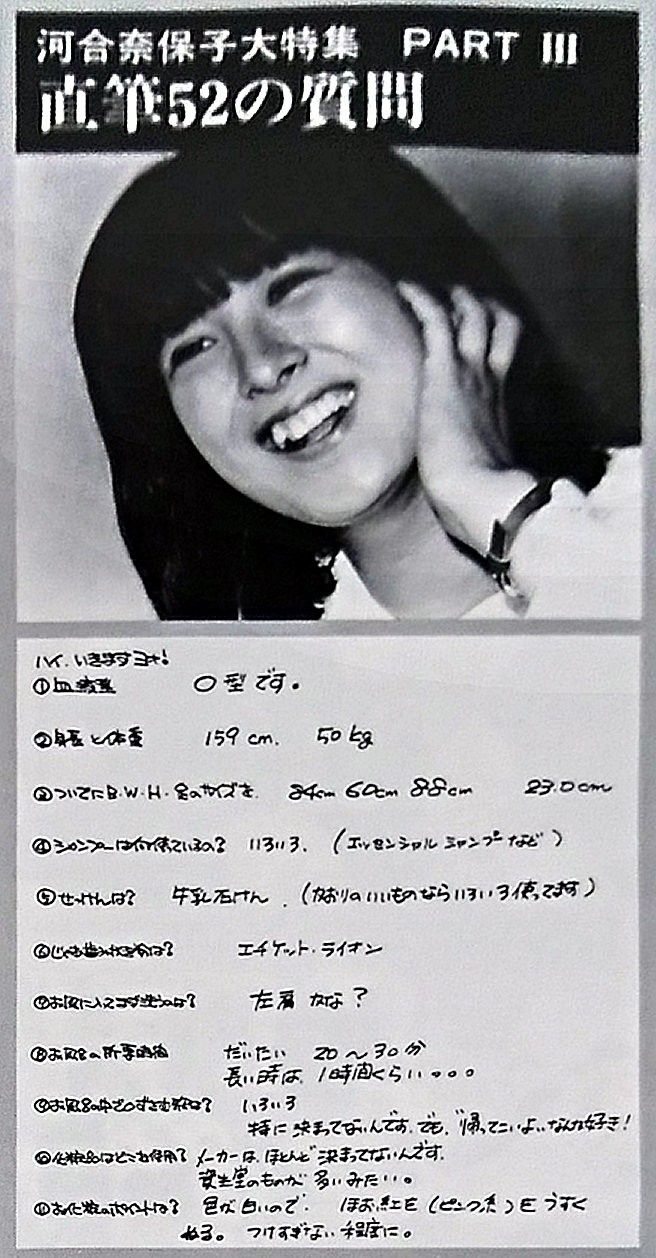 河合奈保子大特集 PART III
直筆52の質問
ハイ、いきますヨォ!
①血液型 O型です。
②身長と体重 159cm. 50kg
③ついでにB・W・H・足のサイズを. 84cm 60cm 88cm 23.0cm
④シャンプーは何使ているの? いろいろ. (エッセンシャル シャンプーなど)
⑤せっけんは? 牛乳石けん. (かおりのいいものならいろいろ使ってます)
⑥じゃあ歯みがき粉は? エチケット・ライオン
⑦お風呂に入ってまず洗うのは? 左肩かな?
⑧お風呂の所要時間 だいたい 20〜30分
長い時は、1時間くらい。。。
⑨お風呂の中で口ずさむ歌は? いろいろ
特に決まってないんです。でも、“帰ってこいよ„なんか好き!
⑩化粧品はどこを使用? メーカーは、ほとんど決まってないんです。
資生堂のものが多いみたい。
⑪お化粧のポイントは? 色が白いので、ほお紅を(ピンク系)をうすく
ぬる。つけすぎない程度に。